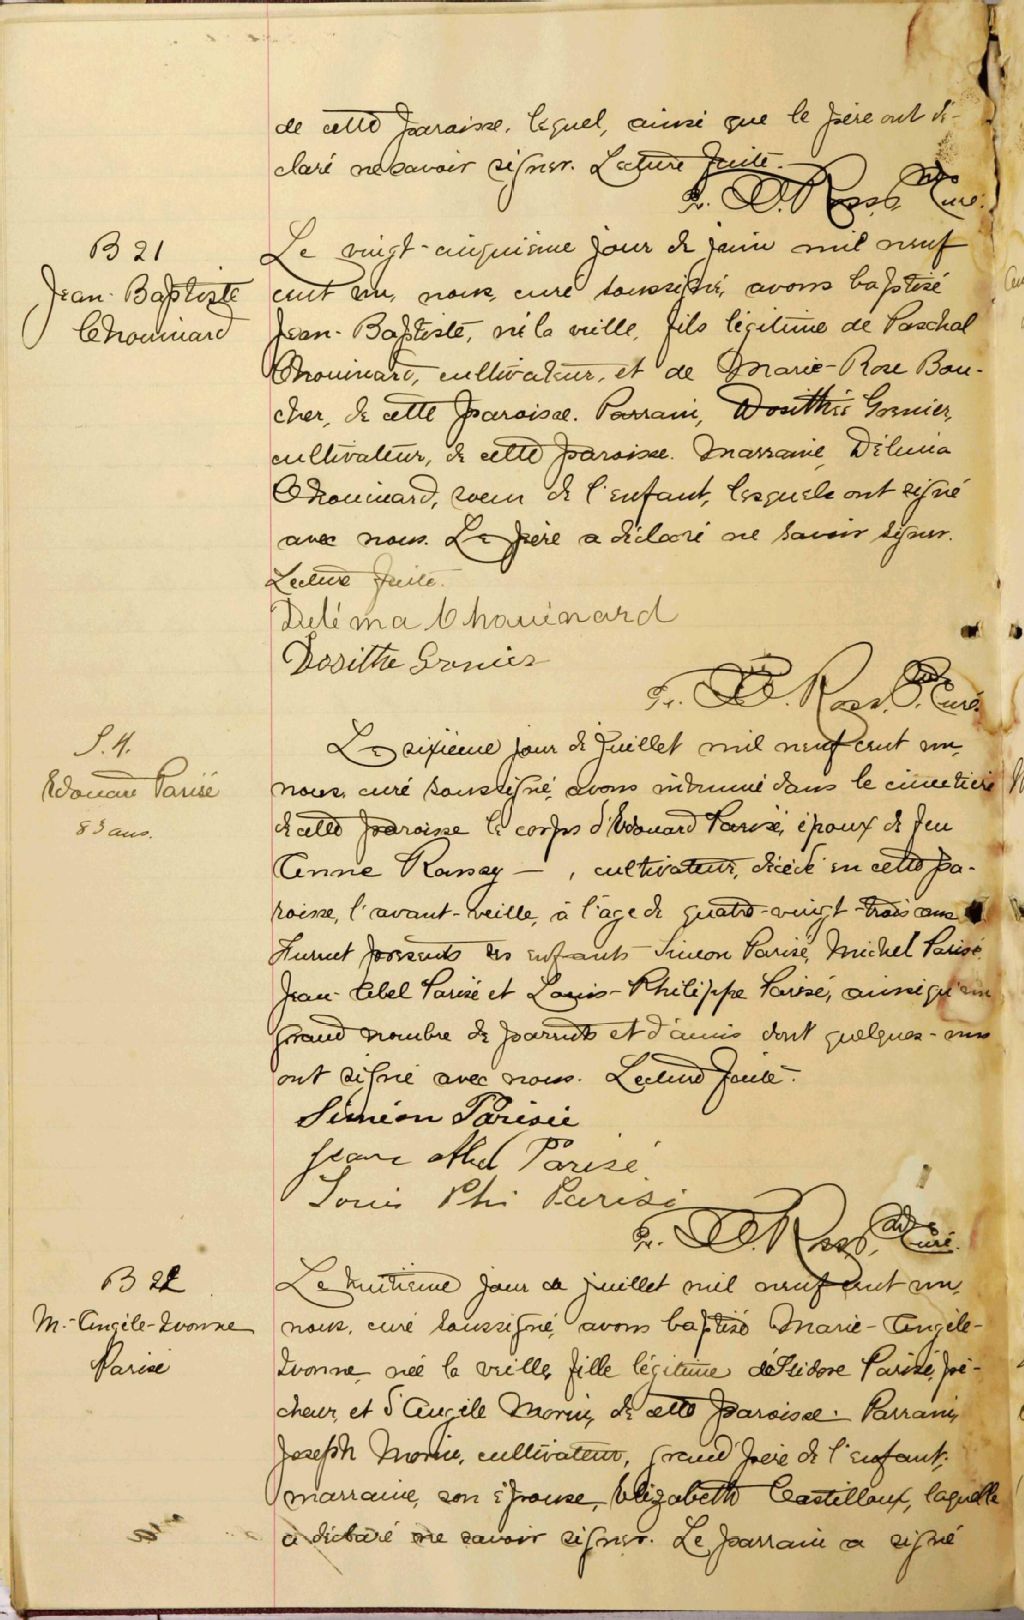 de cette paroisse, lequel, ainsi que le père ont dé-
claré ne savoir signer. Lecture faite.
Ptre. Curé.
B 21
Jean-Baptiste
Chouinard
Le vingt-cinquième jour de juin mil neuf
cent un, nous, curé soussigné, avons baptisé
Jean-Baptiste, né la veille, fils légitime de Paschal
Chouinard, cultivateur, et de Marie-Rose Bou-
cher, de cette paroisse. Parrain, Dosithée Grenier,
cultivateur, de cette paroisse. Marraine, Délima
Chouinard, soeur de l'enfant, lesquels ont signé
avec nous. Le père a déclaré ne savoir signer.
Lecture faite.
Deléma Chouinard
Dosithe Grenier
Ross, Ptre. Curé.
S. 4.
Edouard Parisé
83 ans.
Le sixième jour de juillet mil neuf cent un,
nous, curé soussigné, avons inhumé dans le cimetière
de cette paroisse le corps d'Edouard Parisé, époux de feu
Anne Ramsay — , cultivateur, décédé en cette pa-
roisse, l'avant-veille, à l'âge de quatre-vingt-trois ans
Furent présents ses enfants Siméon Parisé, Michel Parisé
Jean-Abel Parisé et Louis-Philippe Parisé, ainsi qu'un
grand nombre de parents et d'amis dont quelques-uns
ont signé avec nous. Lecture faite.
Siméon Parisie
Jean Abel Parisé
Louis Phi Parisé
Ross, Ptre. Curé.
B 22
M.-Angèle-Ivonne
Parisé
Le huitième jour de juillet mil neuf cent un,
nous, curé soussigné, avons baptisé Marie-Angèle-
Ivonne, née la veille, fille légitime d'Isidore Parisé, pê-
cheur, et d'Angèle Morin, de cette paroisse. Parrain,
Joseph Morin, cultivateur, grand'père de l'enfant;
marraine, son épouse, Elizabeth Castilloux, laquelle
a déclaré ne savoir signer. Le parrain a signé